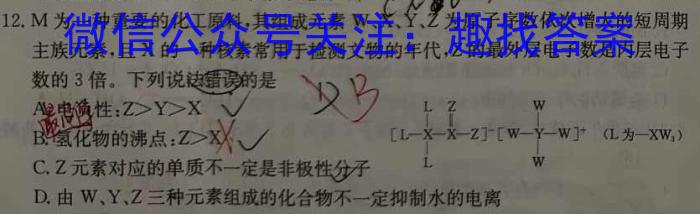 12. M为一种重要的化工原料,其组成元素W、X、Y、Z为原子序数依次增大的短周期
主族元素,且X的一种核素常用于检测文物的年代,Z的最外层电子数是内层电子
数的3倍。下列说法错误的是
微信公众号关注:趣找答案
A. 电负性:Z>Y>X
B. 氢化物的沸点:Z>X
C. Z元素对应的单质不一定是非极性分子
D. 由W、Y、Z三种元素组成的化合物不一定抑制水的电离
L Z W
[L—X—X—Z]⁻[W—Y—W]⁺ (L为—XW₃)
L W